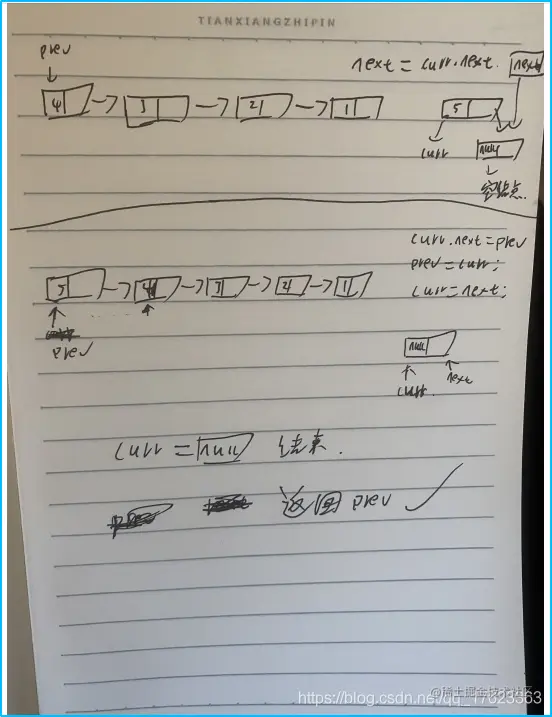 TIANXIANGZHIPIN
prev
next = curr.next. next
4 3 2 1 5
curr null
空结点.
curr.next=prev
prev=curr;
curr=next;
5 4 3 2 1
prev
null
curr next
curr = null 结束.
返回 prev
@稀土掘金技术社区